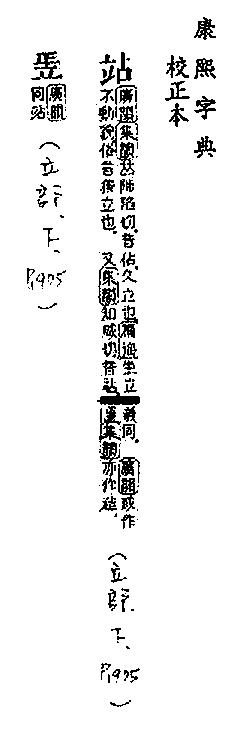 康熙字典
校正本
站 廣韻集韻𠀤陟陷切。音佔。久立也。篇海坐立
不動貌。俗言獨立也。又集韻知咸切。音詀。
義同。廣韻或作
集韻亦作
(立部、下、P,905)
廣韻
同站
(立部、下、P,905)